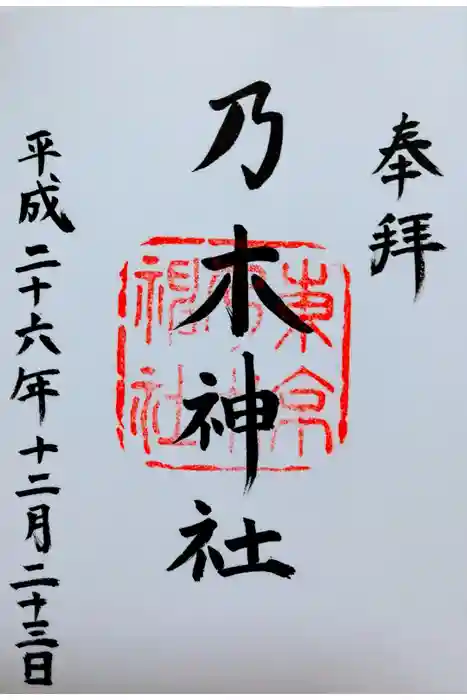 奉拝
乃木神社
平成二十六年十二月二十三日
東京
神社